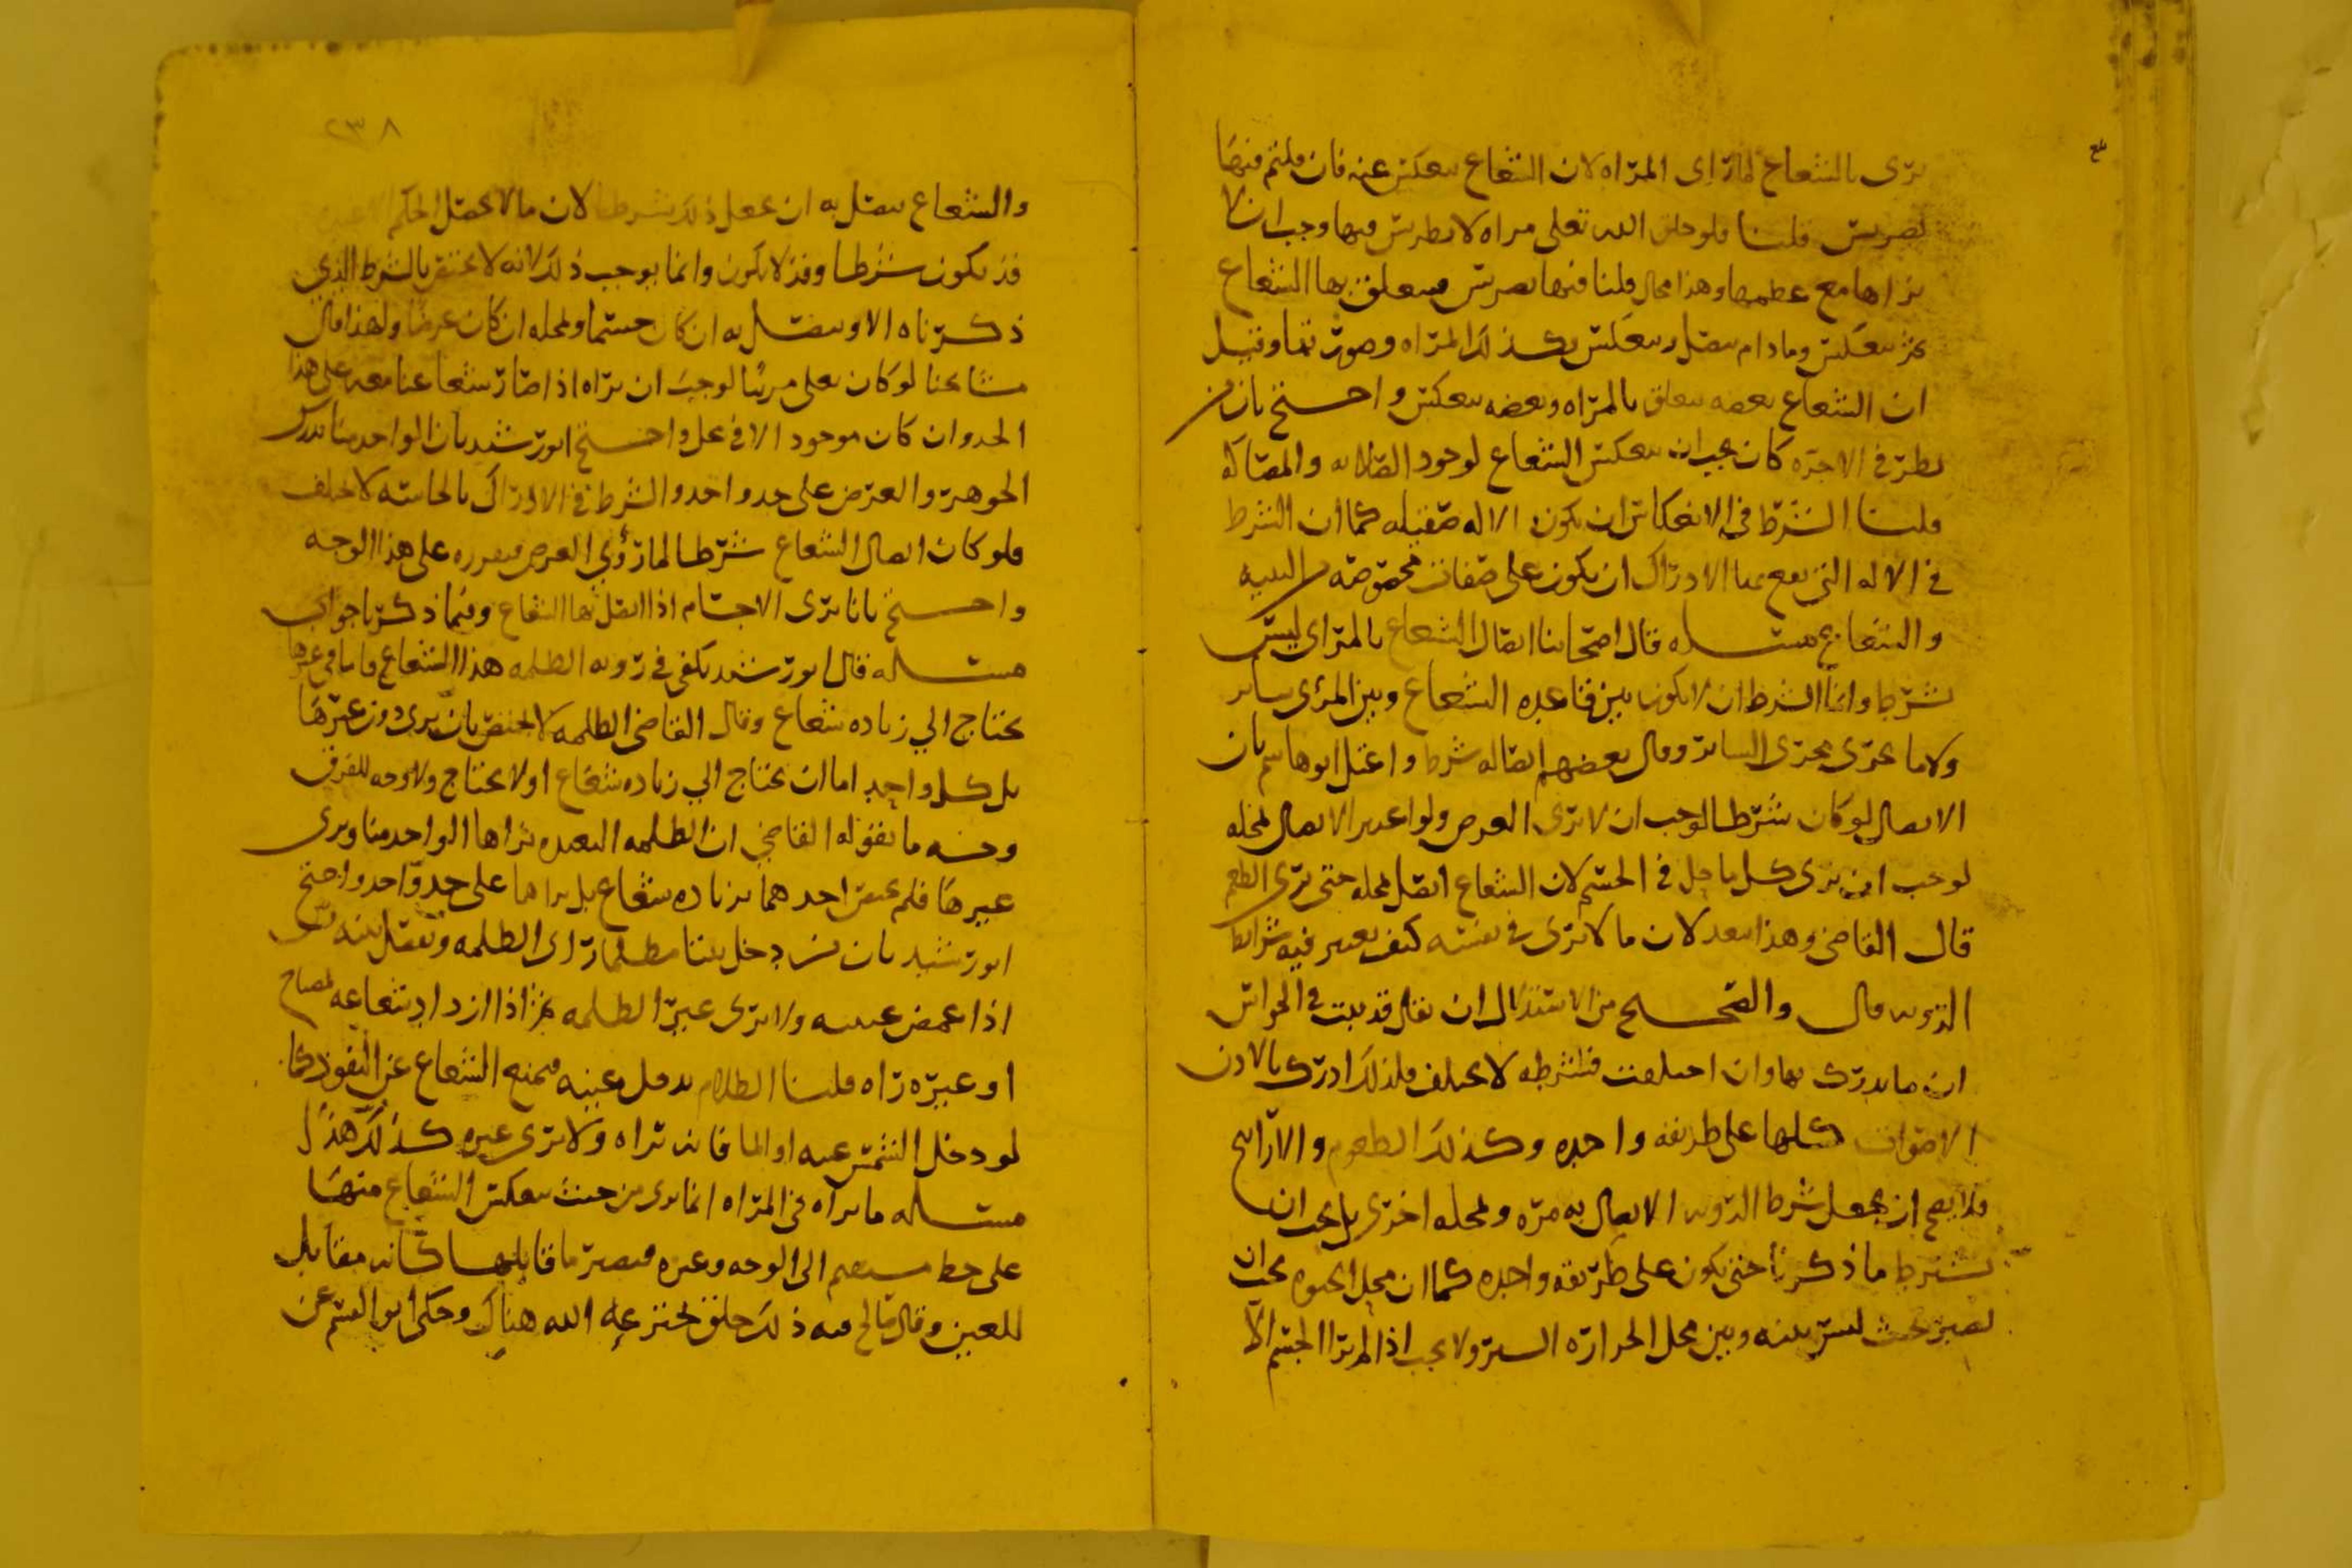 يرى بالشعاع لما راى المراه لان الشعاع ينعكس عنه فان قلتم فيها
تضريس قلنا فلو خلق الله تعلى مراه لا تضريس فيها وجب ان لا
يراها مع عظمها وهذا محال قلنا فيها تضريس فيتعلق بها الشعاع
ثم ينعكس وما دام يتصل وينعكس يكذلك المراه وصورتها وقيل
ان الشعاع بعضه يتعلق بالمراه وبعضه ينعكس واحتج بان من
نظر في الاجره كان يجب ان ينعكس الشعاع لوجود الصلابه والمصاكه
قلنا الشرط في الانعكاس ان يكون الاله صقيله كما ان الشرط
في الاله التي يقع بها الادراك ان يكون على صفات مخصوصه من البنيه
والشعاع مسله قال اصحابنا اتصال الشعاع بالمراى ليس
بشرط وانما الشرط ان لا يكون بين قاعده الشعاع وبين المرئ ساتر
ولا ما يجرى مجرى الساتر وقال بعضهم اتصاله شرط واعتل ابو هاشم بان
الاتصال لو كان شرطا لوجب ان لا يرى العرض ولو اعتبر الاتصال لمحله
لوجب ان يرى كل ما حل في الجسم لان الشعاع اتصل لمحله حتى يرى الطعم
قال القاضي وهذا يبعد لان ما لا يرى في نفسه كيف يعتبر فيه شرايط
الرؤيه قال والصحيح من الاستدلال ان يقال قد ثبت في الحواس
ان ما يدرك بها وان اختلفت فشرطه لا يختلف فلذلك ادرك بالاذن
الاصوات كلها على طريقه واحده وكذلك الطعوم والاراييح
فلا يصح ان يجعل شرط الرؤيه الاتصال به مره ولمحله اخرى بل يجب ان
يشترط ما ذكرنا حتى يكون على طريقه واحده كما ان محل الحيوه يجب ان
يصير بحيث ليس بينه وبين محل الحراره الستر ولا يجب اذا لم ير الجسم الا
٢٣٨
والشعاع يتصل به ان يجعل ذلك شرطا لان ما لا يحصل الحكم الا عنده
قد يكون شرطا وقد لا يكون وانما يوجب ذلك لانه لا يختص بالشرط الذي
ذكرناه الا ويتصل به ان كان جسما ولمحله ان كان عرضا ولهذا قال
مشايخنا لو كان تعلى مرئيا لوجب ان نراه اذا صار شعاعنا معه على هذا
الحد وان كان موجود الا في محل واحتج ابو رشيد بان الواحد منا يدرك
الجوهر والعرض على حد واحد والشرط في الادراك بالحاسه لا يختلف
فلو كان اتصال الشعاع شرطا لما رؤي العرض فيقرره على هذا الوجه
واحتج بانا نرى الاجسام اذا اتصل بها الشعاع وفيما ذكرنا جواب
مسله قال ابو رشيد يكفي في رؤيه الظلمه هذا الشعاع فاما في غيرها
يحتاج الي زياده شعاع وقال القاضي الظلمه لا يختص بان يرى دون غيرها
بل كل واحد اما ان يحتاج الي زياده شعاع او لا يحتاج ولا وجه للفرق
وجه ما يقوله القاضي ان الظلمه البعيده يراها الواحد منا ويرى
غيرها فلم يختص احدهما بزياده شعاع بل يراها على حد واحد واحتج
ابو رشيد بان من دخل بيتا مظلما راى الظلمه ويفصل بينه وبين
اذا غمض عينيه ولا يرى غير الظلمه ثم اذا ازداد شعاعه لمصباح
او غيره راه قلنا الظلام يدخل عينيه فيمنع الشعاع عن النفوذ كما
لو دخل الشمس عينه او الما فانه يراه ولا يرى غيره كذلك هذا
مسله ما يراه في المراه انما يرى من حيث ينعكس الشعاع منها
على خط مستقيم الى الوجه وغيره فيصير ما قابلها كانه مقابل
للعين وقال صالح قبه ذلك خلق يخترعه الله هناك وحكى ابو القسم عن